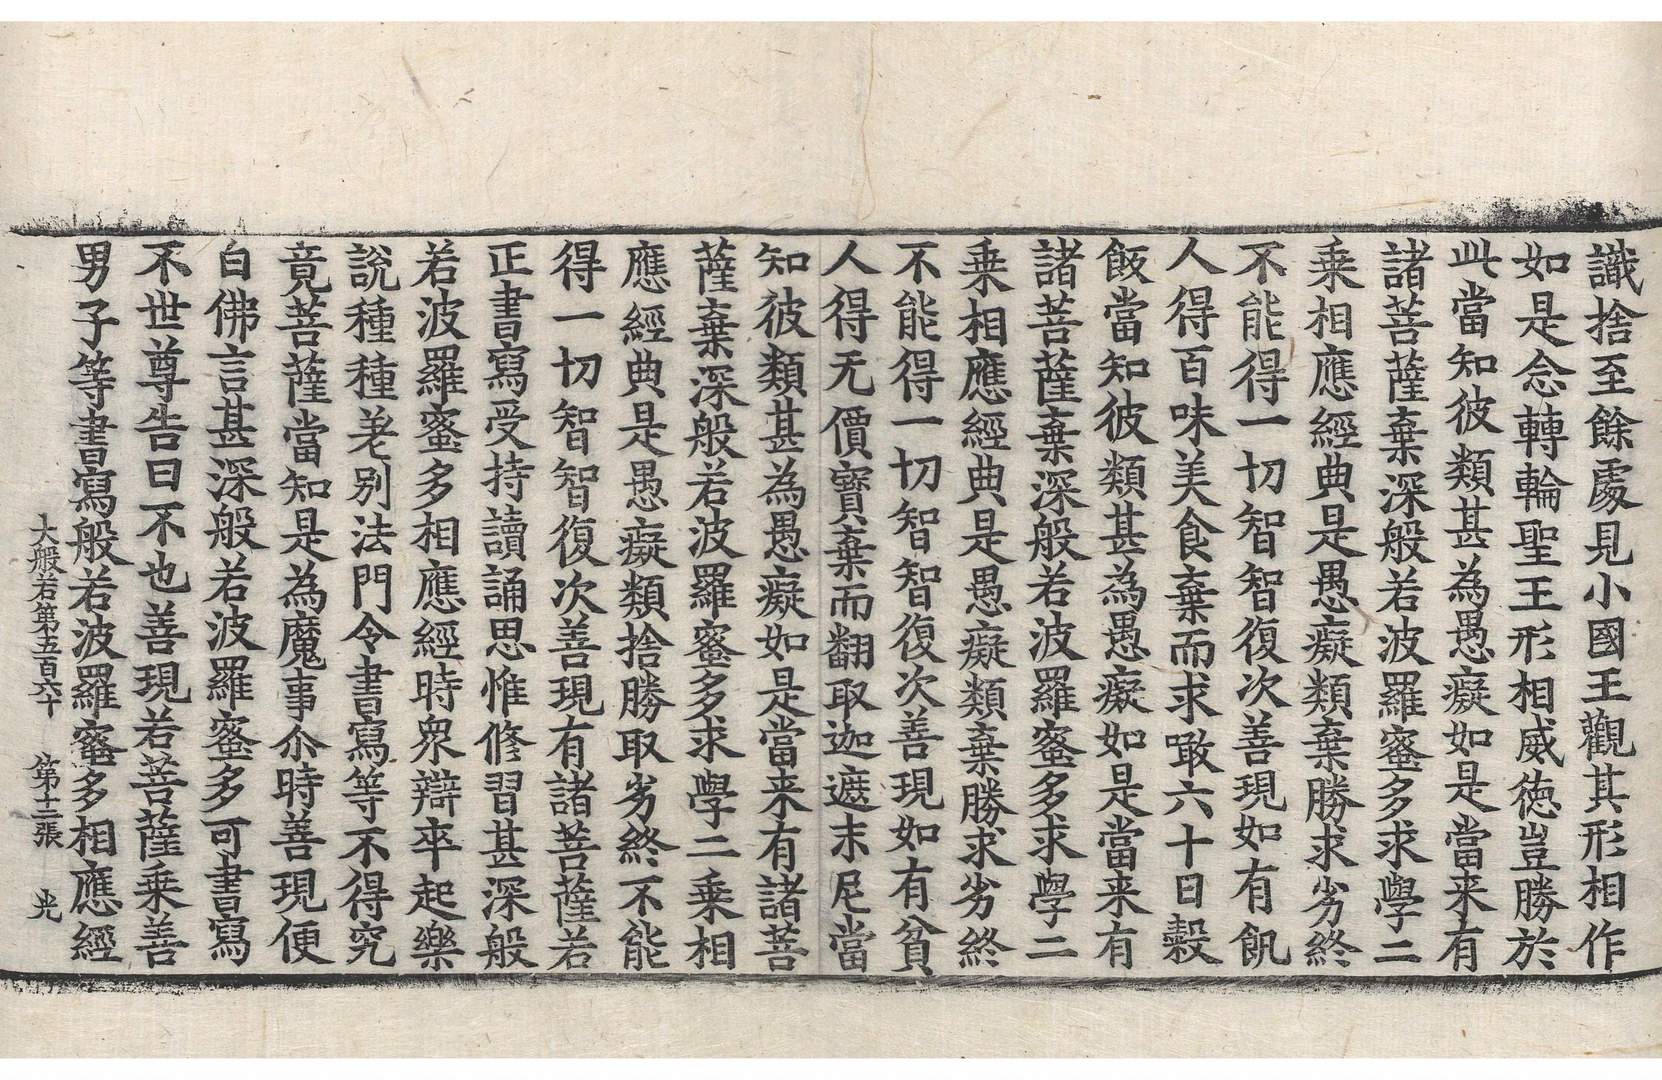 識捨至餘處見小國王觀其形相作
如是念轉輪聖王形相威德豈勝於
此當知彼類甚為愚癡如是當来有
諸菩薩棄深般若波羅蜜多求學二
乗相應經典是愚癡類棄勝求劣終
不能得一切智智復次善現如有飢
人得百味美食棄而求噉六十日穀
飯當知彼類甚為愚癡如是當来有
諸菩薩棄深般若波羅蜜多求學二
乗相應經典是愚癡類棄勝求劣終
不能得一切智智復次善現如有貧
人得无價寶棄而翻取迦遮末尼當
知彼類甚為愚癡如是當来有諸菩
薩棄深般若波羅蜜多求學二乗相
應經典是愚癡類捨勝取劣終不能
得一切智智復次善現有諸菩薩若
正書寫受持讀誦思惟修習甚深般
若波羅蜜多相應經時衆辯卒起樂
說種種差别法門令書寫等不得究
竟菩薩當知是為魔事尒時善現便
白佛言甚深般若波羅蜜多可書寫
不世尊告曰不也善現若菩薩乗善
男子等書寫般若波羅蜜多相應經
大般若第五百六十 第十二張 光